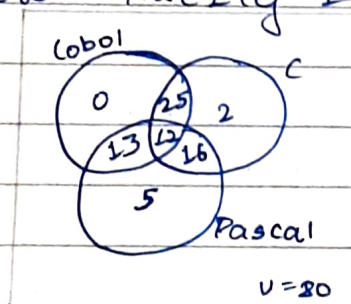 Cobol
C
0 25 2
13 12 16
5
Pascal
U = 80